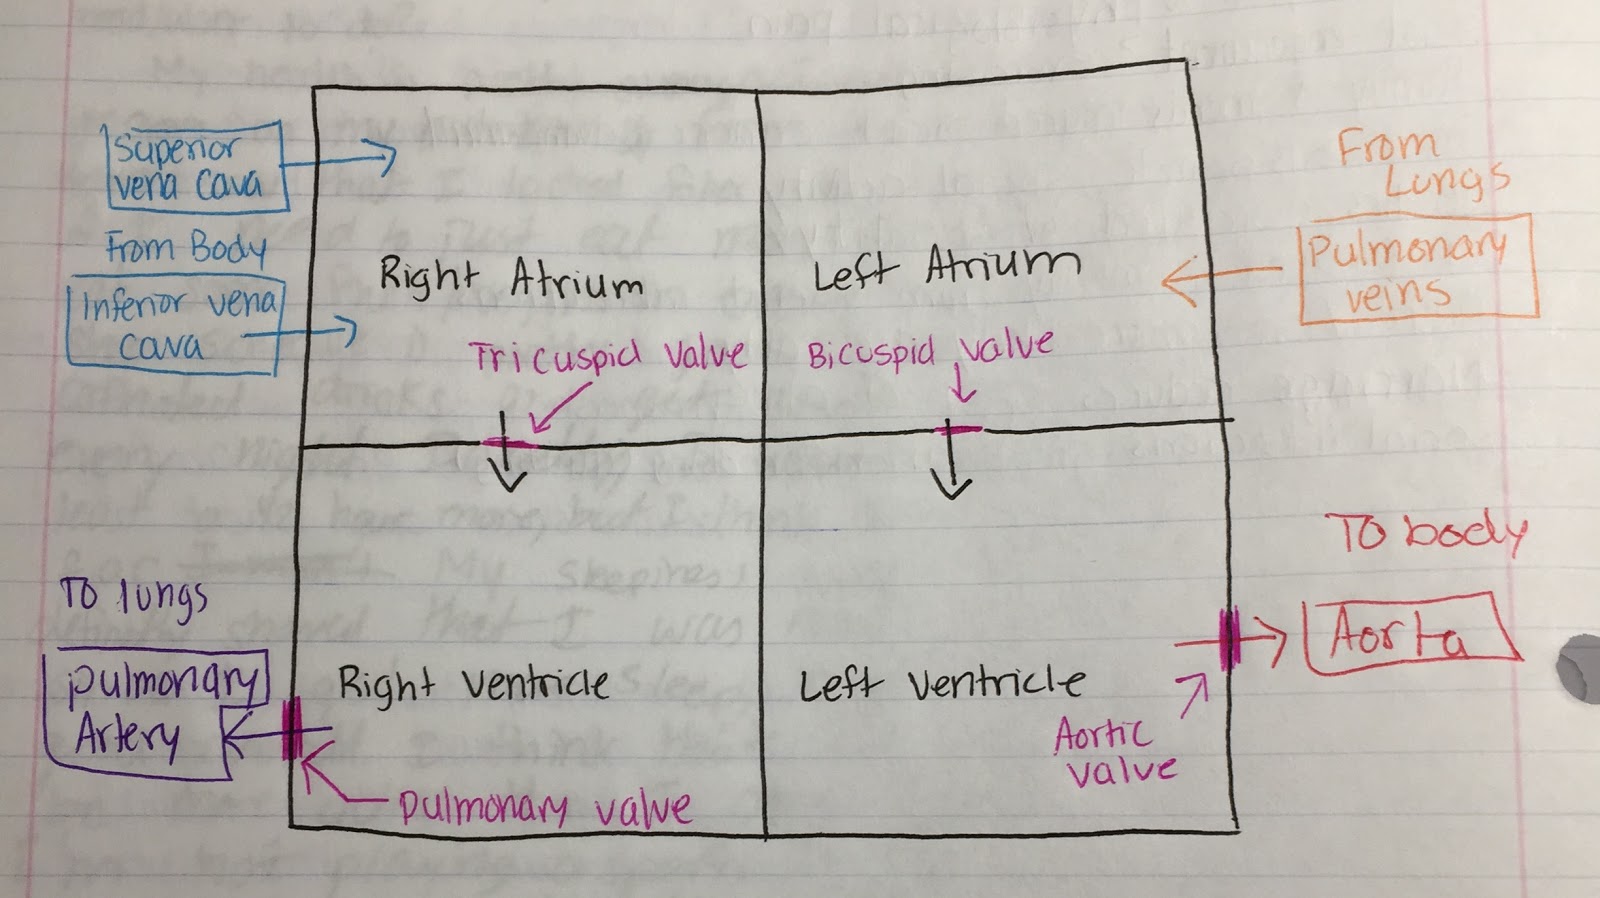 Superior
vena Cava
From Body
Inferior vena
cava
Right Atrium
Tricuspid valve
Left Atrium
Bicuspid valve
From
Lungs
Pulmonary
veins
To lungs
pulmonary
Artery
Right Ventricle
pulmonary valve
Left Ventricle
Aortic
valve
To body
Aorta